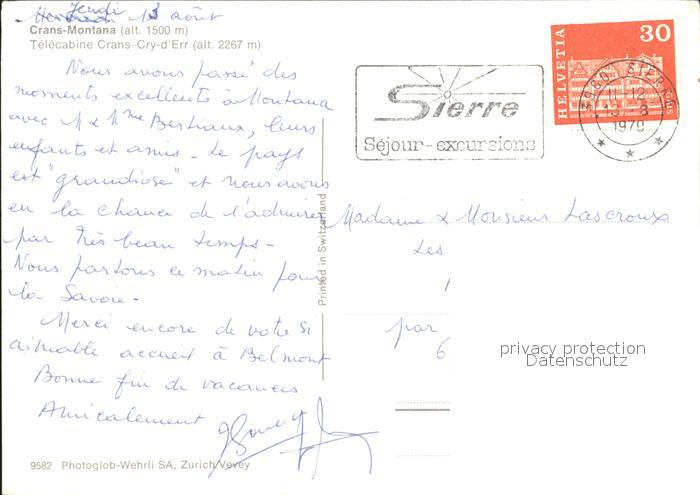 Jeudi 13 août
Crans-Montana (alt. 1500 m)
Télécabine Crans-Cry-d'Err (alt. 2267 m)
Nous avons passé des
moments excellents à Montana
avec M & Mme Bertiaux, leurs
enfants et amis - Le pays
est "grandiose" et nous avons
eu la chance de l'admirer
par très beau temps -
Nous partons ce matin pour
la Savoie -
Merci encore de votre si
aimable accueil à Belmont
Bonne fin de vacances
Amicalement
9582 Photoglob-Wehrli SA, Zurich/Vevey
Printed in Switzerland
Sierre
Séjour-excursions
HELVETIA
30
3960 SIERRE
1970
Madame & Monsieur Lascroux
Les
par
6
privacy protection
Datenschutz